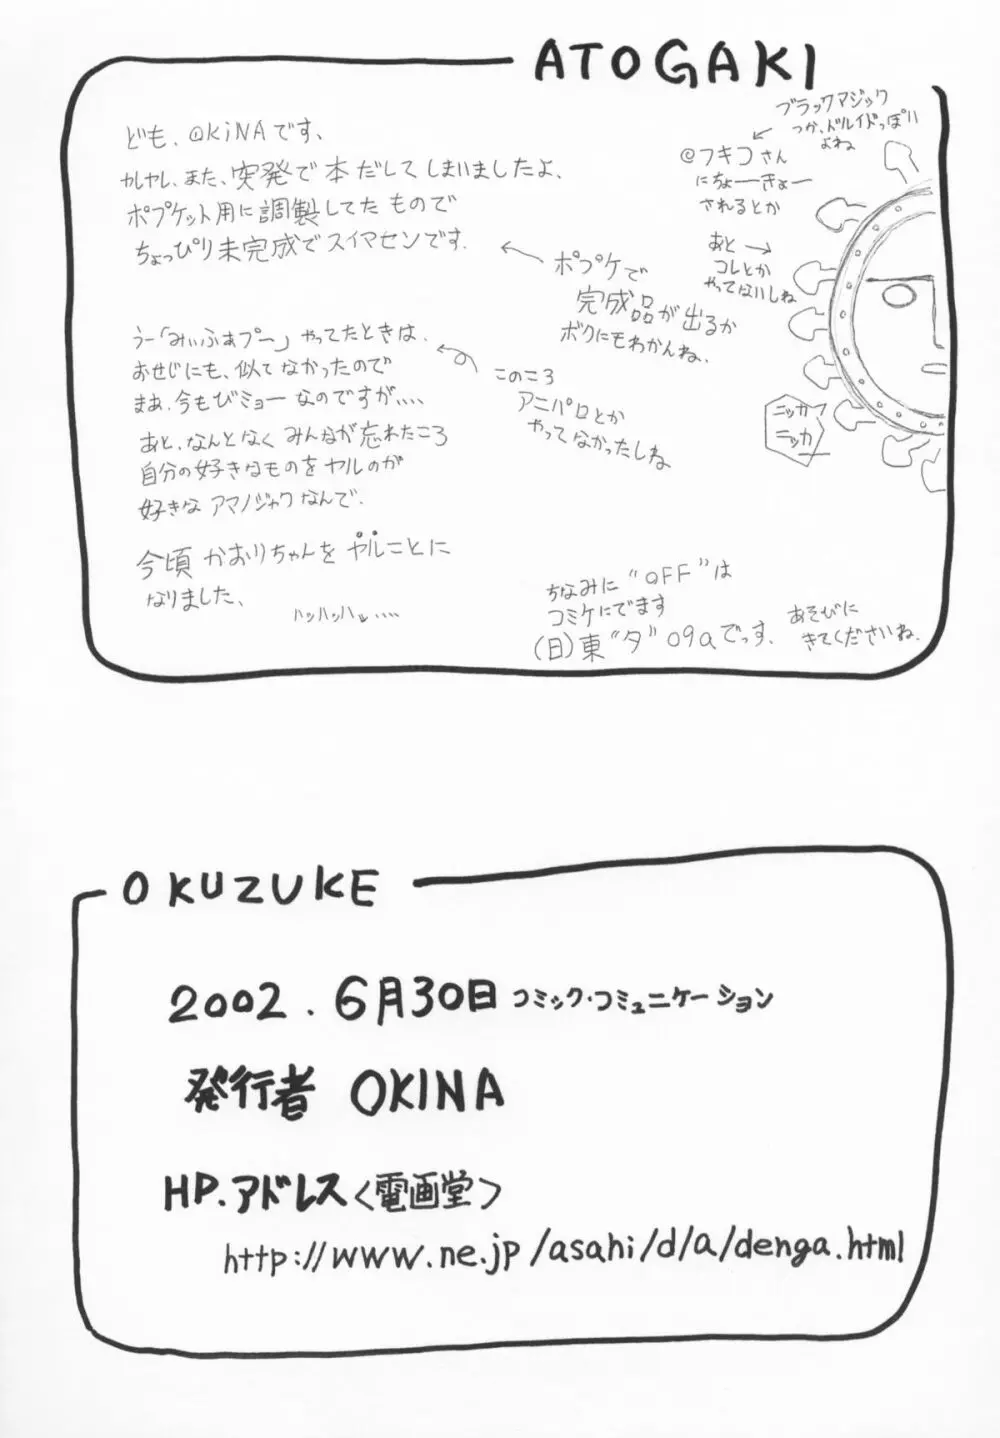 ATOGAKI
ども、OKiNAです、
ヤレヤレ、また、突発で本だしてしまいましたよ、
ポプケット用に調製してたもので
ちょっぴり未完成でスイマセンです.
ポプケで
完成品が出るか
ボクにもわかんね、
うー「みぃふぁぷー」やってたときは、
おせじにも、似てなかったので
まあ、今もびミョーなのですが、、、、
このころ
アニパロとか
やってなかったしね
あと、なんとなくみんなが忘れたころ
自分の好きなものをヤルのが
好きなアマノジャクなんで、
今頃かおりちゃんをヤルことに
なりました、
ハッハッハッ、、、、
ブラックマジック
つか、ドルイドっぽい
よね
@フキコさん
にちょーきょー
されるとか
あと→
コレとか
やってないしね
ニッカ
ニッカ
ちなみに"OFF"は
コミケにでます
(日)東"タ"09aでっす.
あそびに
きてくださいね.
OKUZUKE
2002.6月30日 コミック・コミュニケーション
発行者 OKINA
HP.アドレス〈電画堂〉
http://www.ne.jp/asahi/d/a/denga.html